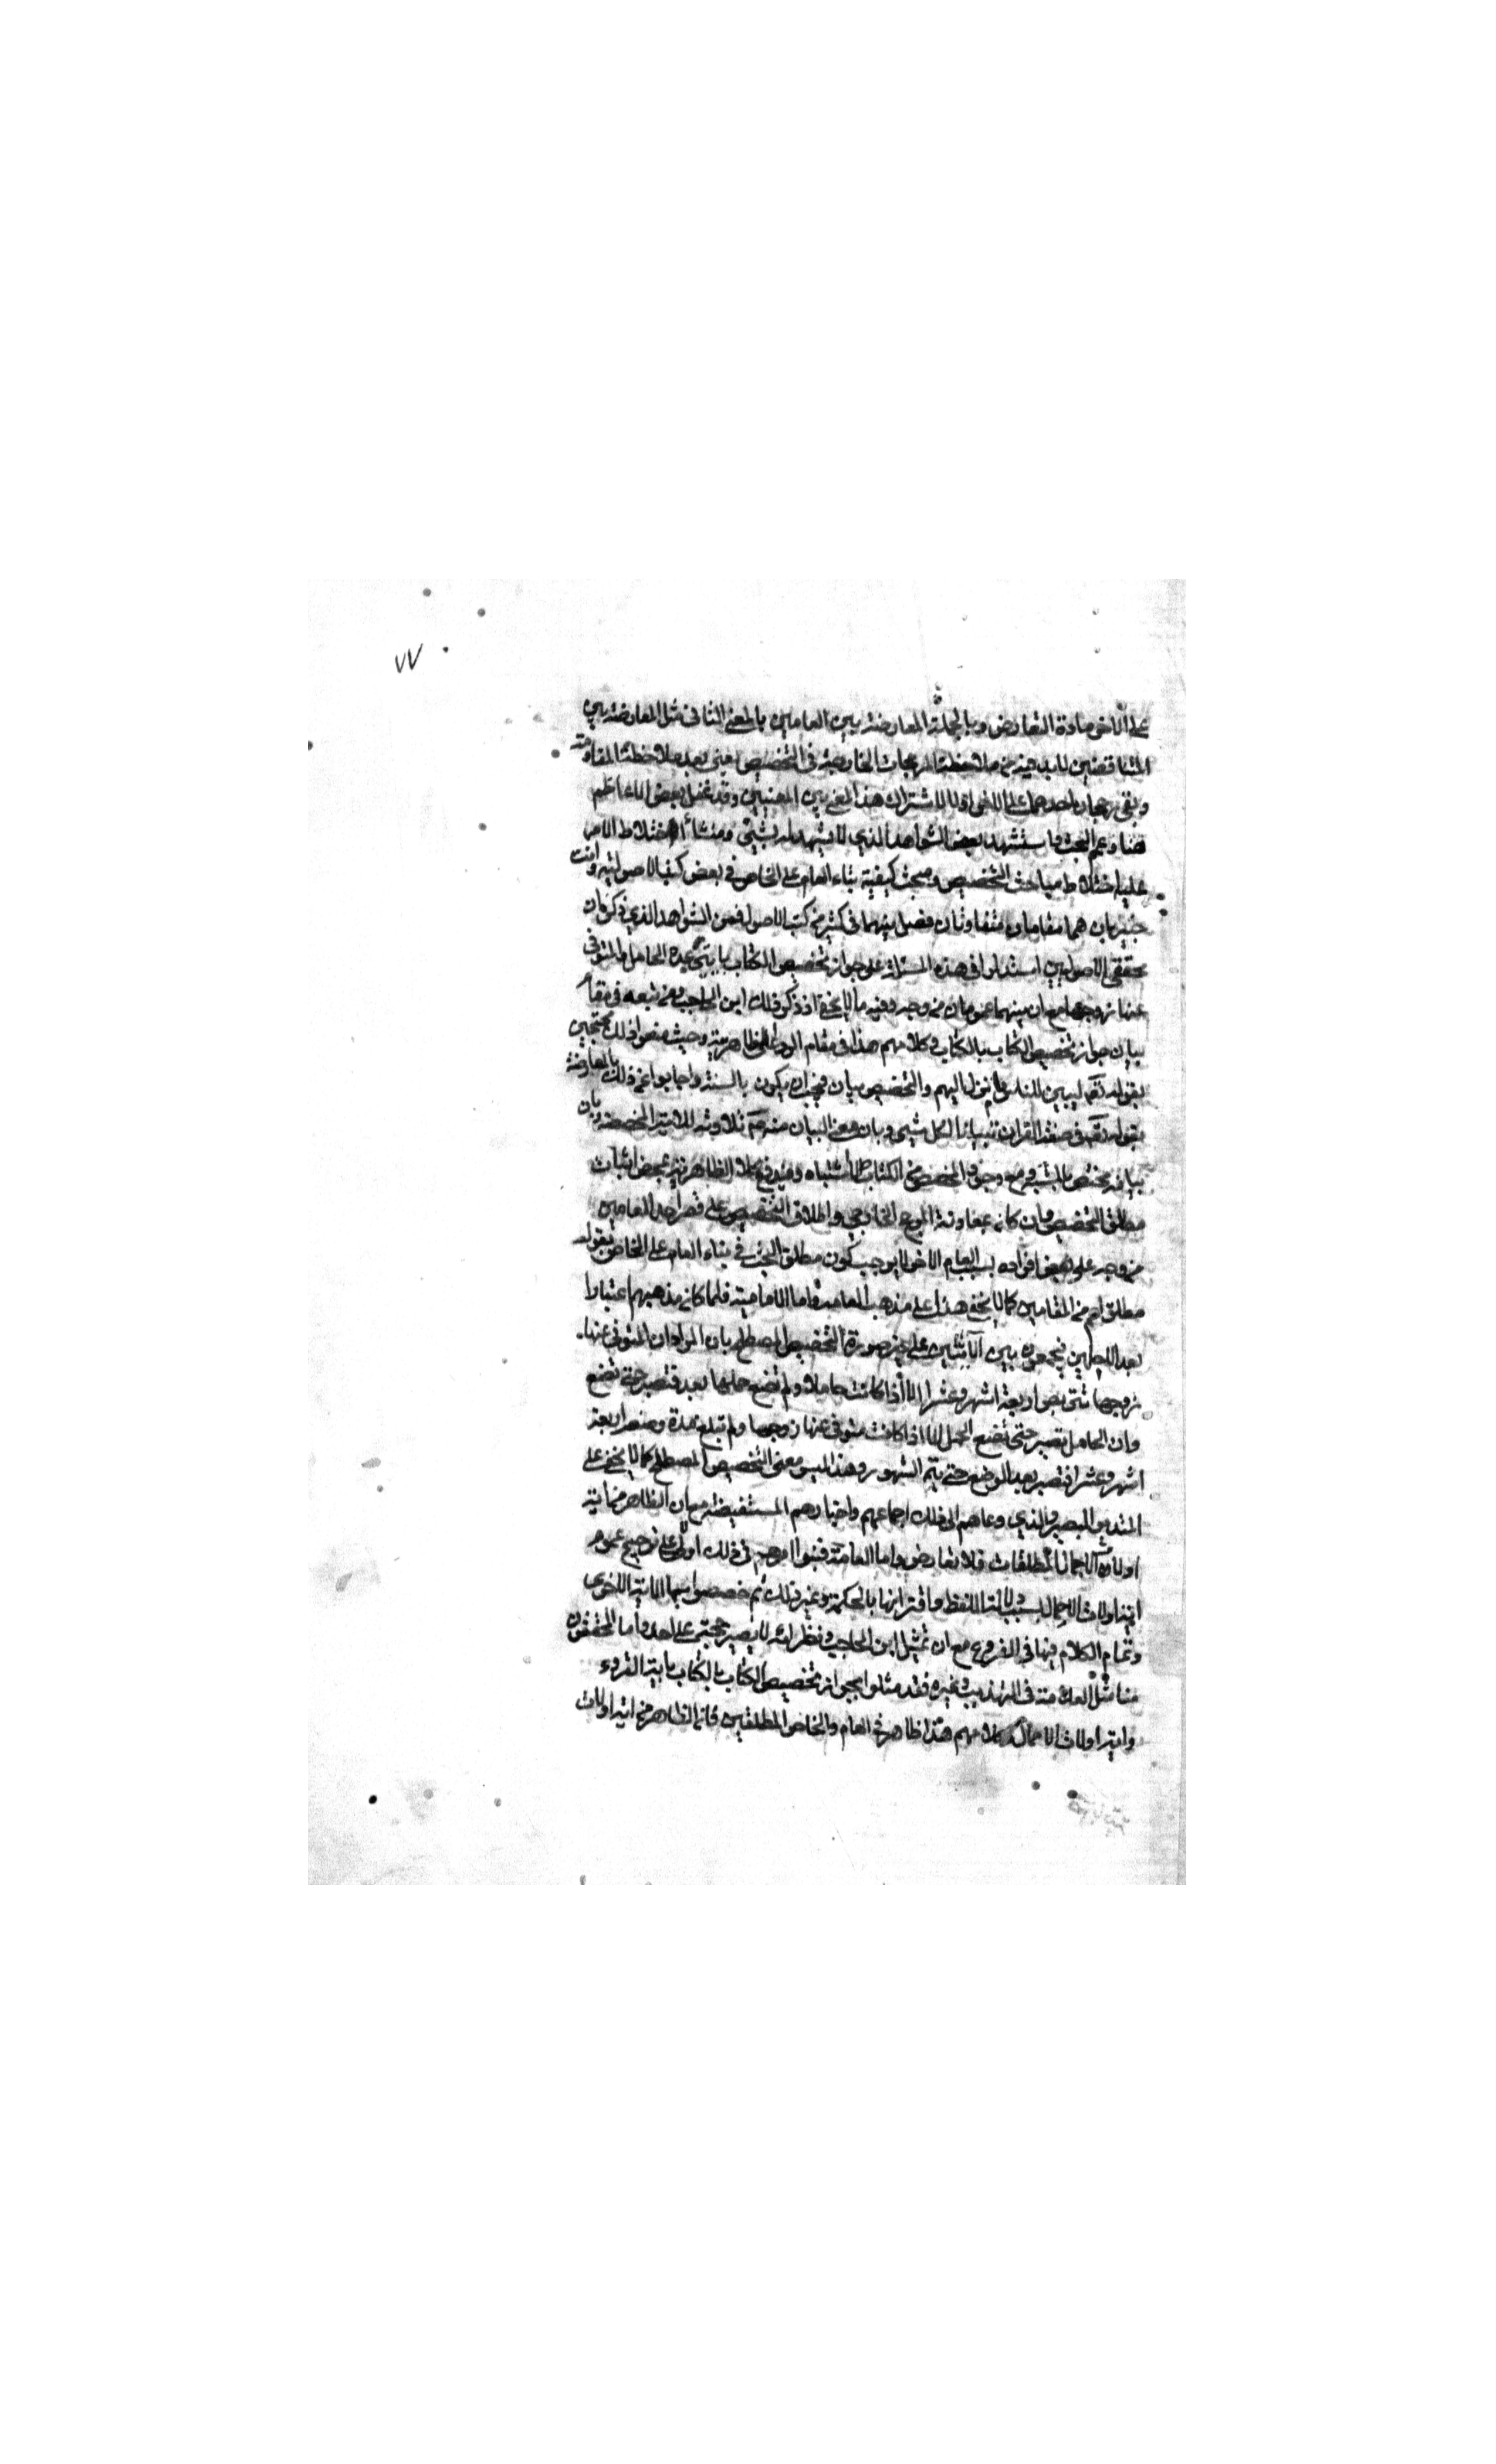 ٧٧
على الاخر مادة التعارض وبالجملة المعارضة بين العامين بالمعنى الثانى مثل المعارضة بين
المتناقضين لابد فيه من ملاحظة المرجحات الخارجية فى التخصيص يعنى بعد ملاحظة المقاومة
وبقى رجحان احدهما على الاخر اولا لاشتراك هذا المعنى بين المعنيين وقد غفل بعض الاعاظم
هنا وعمم البحث واستشهد ببعض الشواهد الذي لا يشهد له بشيئ ومنشأ اختلاط الامر
عليه اختلاط مباحث التخصيص ومبحث كيفية بناء العام على الخاص فى بعض كتب الاصولية وانت
خبير بان هما مقامان متفاوتان فصل بينهما فى كثير من كتب الاصول فمن الشواهد الذي ذكر ان
محققى الاصوليين استدلوا فى هذه المسئلة على جواز تخصيص الكتاب بايتى عدة الحامل والمتوفى
عنها زوجها مع ان بينهما عموما من وجه وفيه ما لا يخفى اذ ذكر ذلك ابن الحاجب ومن تبعه فى مقام
بيان جواز تخصيص الكتاب بالكتاب وكلامهم هذا فى مقام الرد على الظاهرية وحيث منعوا ذلك محتجين
بقوله تعالى ليبين للناس ما نزل اليهم والتخصيص بيان فيجب ان يكون بالسنة واجابوا عن ذلك بالمعارضة
بقوله تعالى فى صفة القران تبيانا لكل شيئ وبان معنى البيان منه ص تلاوته للاية المخصصة وبان
بيانه مختص بالمشتبه ومع وجود المخصص من الكتاب لا اشتباه ويندفع كلام الظاهرية بمحض اثبات
مطلق التخصيص وان كان بمعاونة المرجح الخارجى واطلاق التخصيص على قصر احد العامين
من وجه على بعض افراده بسبب العام الاخر لا يوجب كون مطلق البحث فى بناء العام على الخاص بقوله
مطلق اعم من المقامين كما لا يخفى هذا على مذهب العامة واما الامامية فلما كان مذهبهم اعتبار
بعد الاجلين فيجمعون بين الآيتين على غير صورة التخصيص المصطلح بان المراد ان المتوفى عنها
زوجها تتربص اربعة اشهر وعشرا الا اذا كانت حاملا ولم تضع حملها بعد فتصبر حتى تضع
وان الحامل تصبر حتى تضع الحمل الا اذا كانت متوفى عنها زوجها ولم تبلغ مدة وضعه اربعة
اشهر وعشرا فتصبر بعد الوضع حتى يتم الشهور وهذا ليس معنى التخصيص المصطلح كما لا يخفى على
المتدبر البصير والذي دعاهم الى ذلك اجماعهم واخبارهم المستفيضة مع ان الظاهر من اية
اولات الاحمال المطلقات فلا تعارض واما العامة فبنوا امرهم فى ذلك اولا على ترجيح عموم
اية اولات الاحمال بسبب دلالة اللفظ واقترانها بالحكمة وغير ذلك ثم خصصوا بها الاية الاخرى
وتمام الكلام فيها فى الفروع مع ان تمثيل ابن الحاجب ونظرائه لا يصير حجة على احد واما المحققون
منا مثل العلامة فى التهذيب وغيره فقد مثلوا بجواز تخصيص الكتاب بالكتاب باية القروء
واية اولات الاحمال وكلامهم هذا ظاهر فى العام والخاص المطلقين فان الظاهر من اية اولات